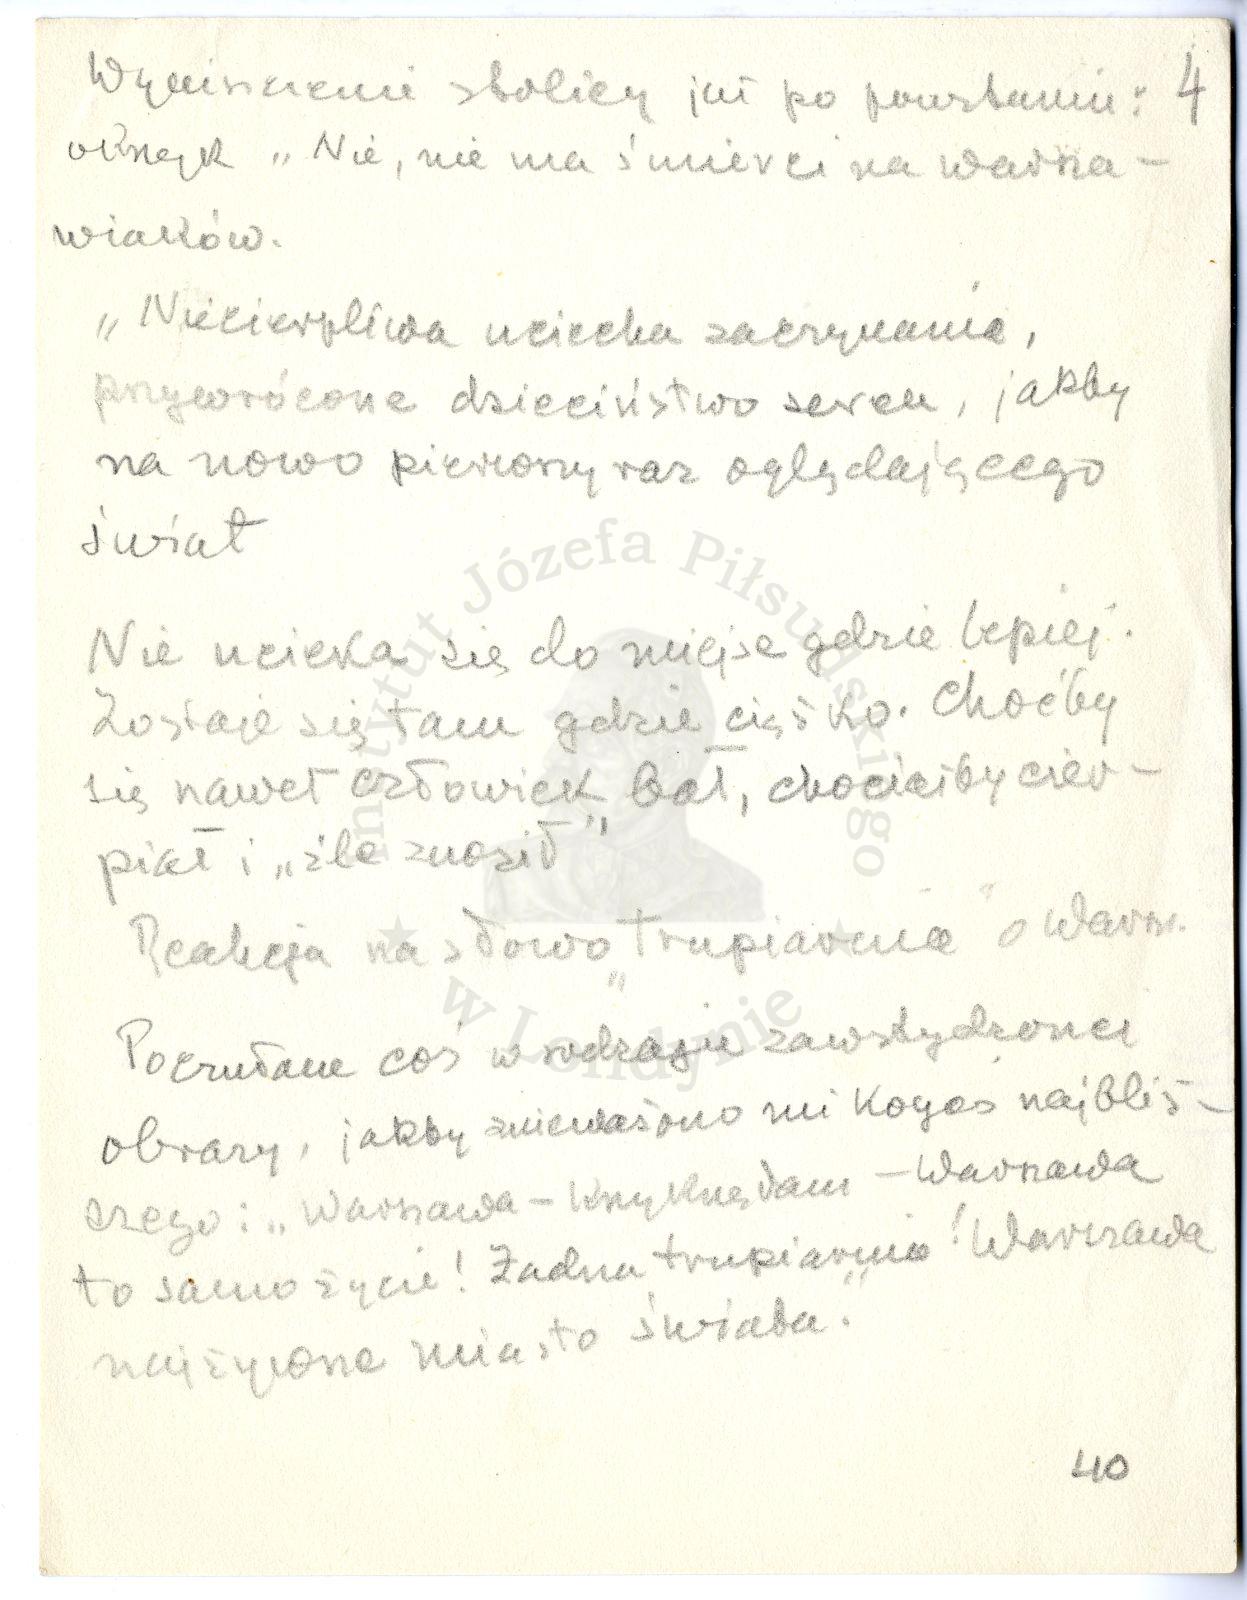 Wyniszczenie stolicy już po powstaniu: 4
okrzyk „Nie, nie ma śmierci na warsza-
wiaków.
„Niecierpliwa uciecha zaczynania,
przywrócone dzieciństwo serca, jakby
na nowo pierwszy raz oglądającego
świat
Nie ucieka się do miejsc gdzie lepiej.
Zostaje się tam gdzie ciężko. Choćby
się nawet człowiek bał, chociażby cier-
piał i „źle znosił”
Reakcja na słowo „trupiarnia” o Warsz.
Poczułam coś w rodzaju zawstydzonej
obrazy, jakby znieważono mi kogoś najbliż-
szego: „Warszawa – krzyknęłam – Warszawa
to samo życie! Żadna trupiarnia! Warszawa
najżywsze miasto świata.”
40
Instytut Józefa Piłsudskiego
w Londynie